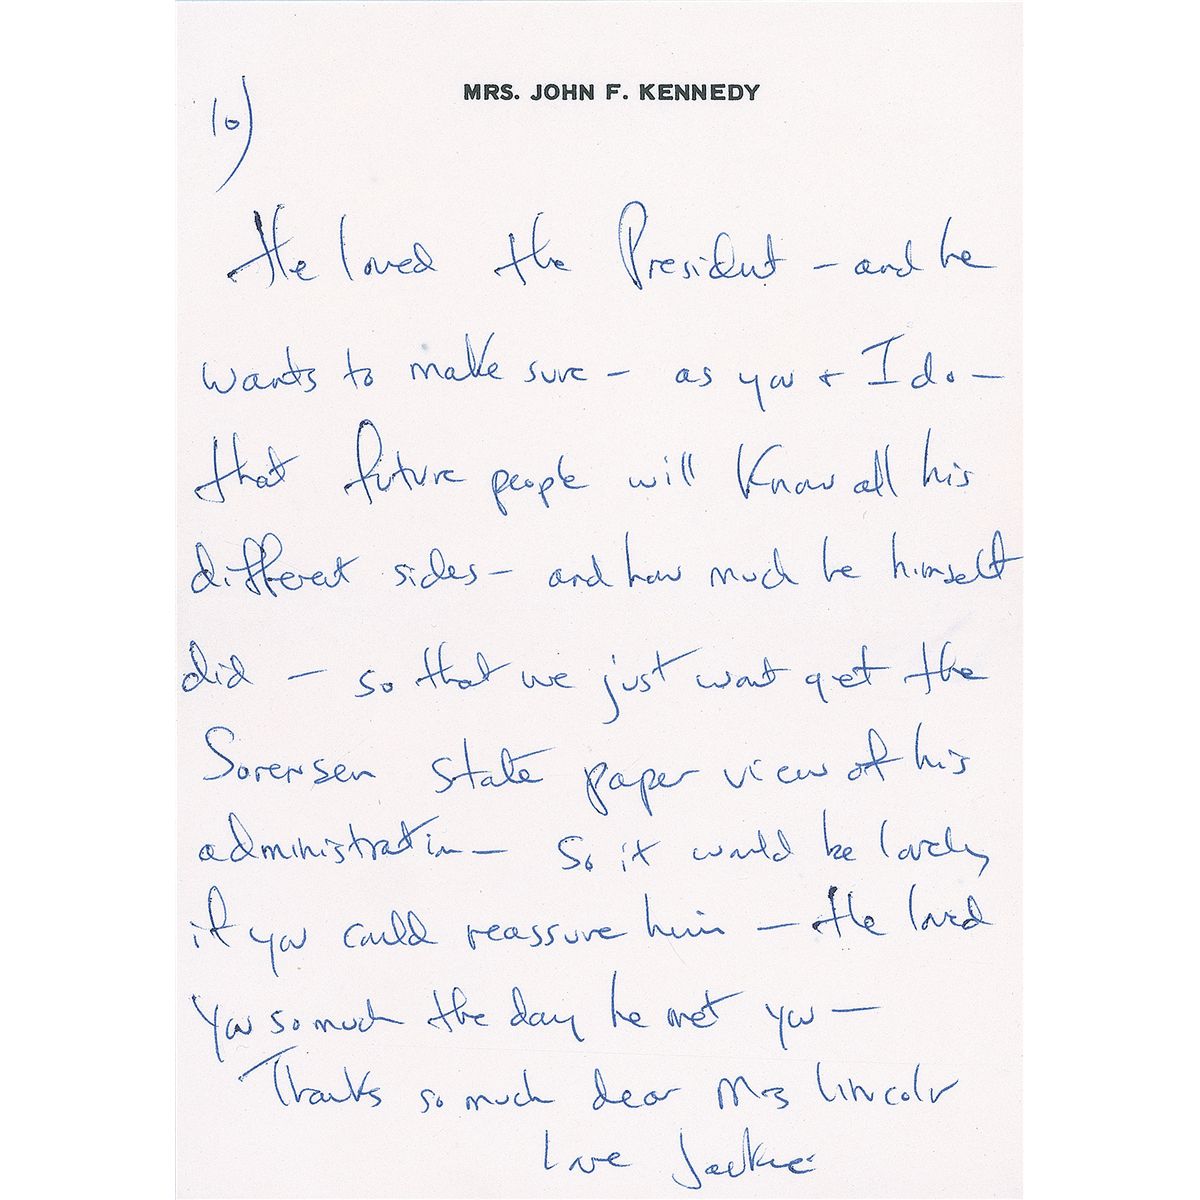 MRS. JOHN F. KENNEDY
10)
He loved the President - and he
wants to make sure - as you + I do -
that future people will know all his
different sides - and how much he himself
did - so that we just wont get the
Sorensen state paper view of his
administration - So it would be lovely
if you could reassure him - He loved
you so much the day he met you -
Thanks so much dear Mrs Lincoln
Love Jackie